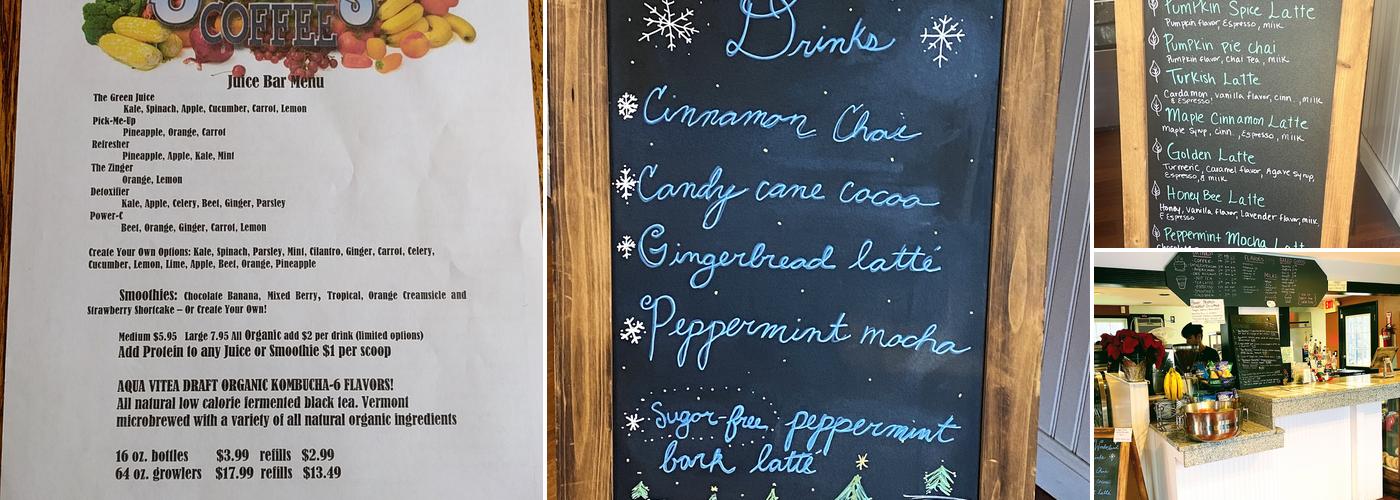 COFFEE
Juice Bar Menu
The Green Juice
Kale, Spinach, Apple, Cucumber, Carrot, Lemon
Pick-Me-Up
Pineapple, Orange, Carrot
Refresher
Pineapple, Apple, Kale, Mint
The Zinger
Orange, Lemon
Detoxifier
Kale, Apple, Celery, Beet, Ginger, Parsley
Power-C
Beet, Orange, Ginger, Carrot, Lemon
Create Your Own Options: Kale, Spinach, Parsley, Mint, Cilantro, Ginger, Carrot, Celery,
Cucumber, Lemon, Lime, Apple, Beet, Orange, Pineapple
Smoothies: Chocolate Banana, Mixed Berry, Tropical, Orange Creamsicle and
Strawberry Shortcake – Or Create Your Own!
Medium $5.95 Large 7.95 All Organic add $2 per drink (limited options)
Add Protein to any Juice or Smoothie $1 per scoop
AQUA VITEA DRAFT ORGANIC KOMBUCHA-6 FLAVORS!
All natural low calorie fermented black tea. Vermont
microbrewed with a variety of all natural organic ingredients
16 oz. bottles $3.99 refills $2.99
64 oz. growlers $17.99 refills $13.49
Drinks
Cinnamon Chai
Candy cane cocoa
Gingerbread latté
Peppermint mocha
Sugar-free peppermint
bark latté
Pumpkin Spice Latte
Pumpkin flavor, Espresso, milk
Pumpkin pie chai
Pumpkin flavor, Chai Tea, milk
Turkish Latte
Cardamon, vanilla flavor, cinn., milk
& Espresso!
Maple Cinnamon Latte
maple syrup, cinn., Espresso, milk
Golden Latte
Turmeric, Caramel flavor, Agave syrup,
Espresso, & milk
Honey Bee Latte
Honey, Vanilla flavor, Lavender flavor, milk,
& Espresso
Peppermint Mocha Latte